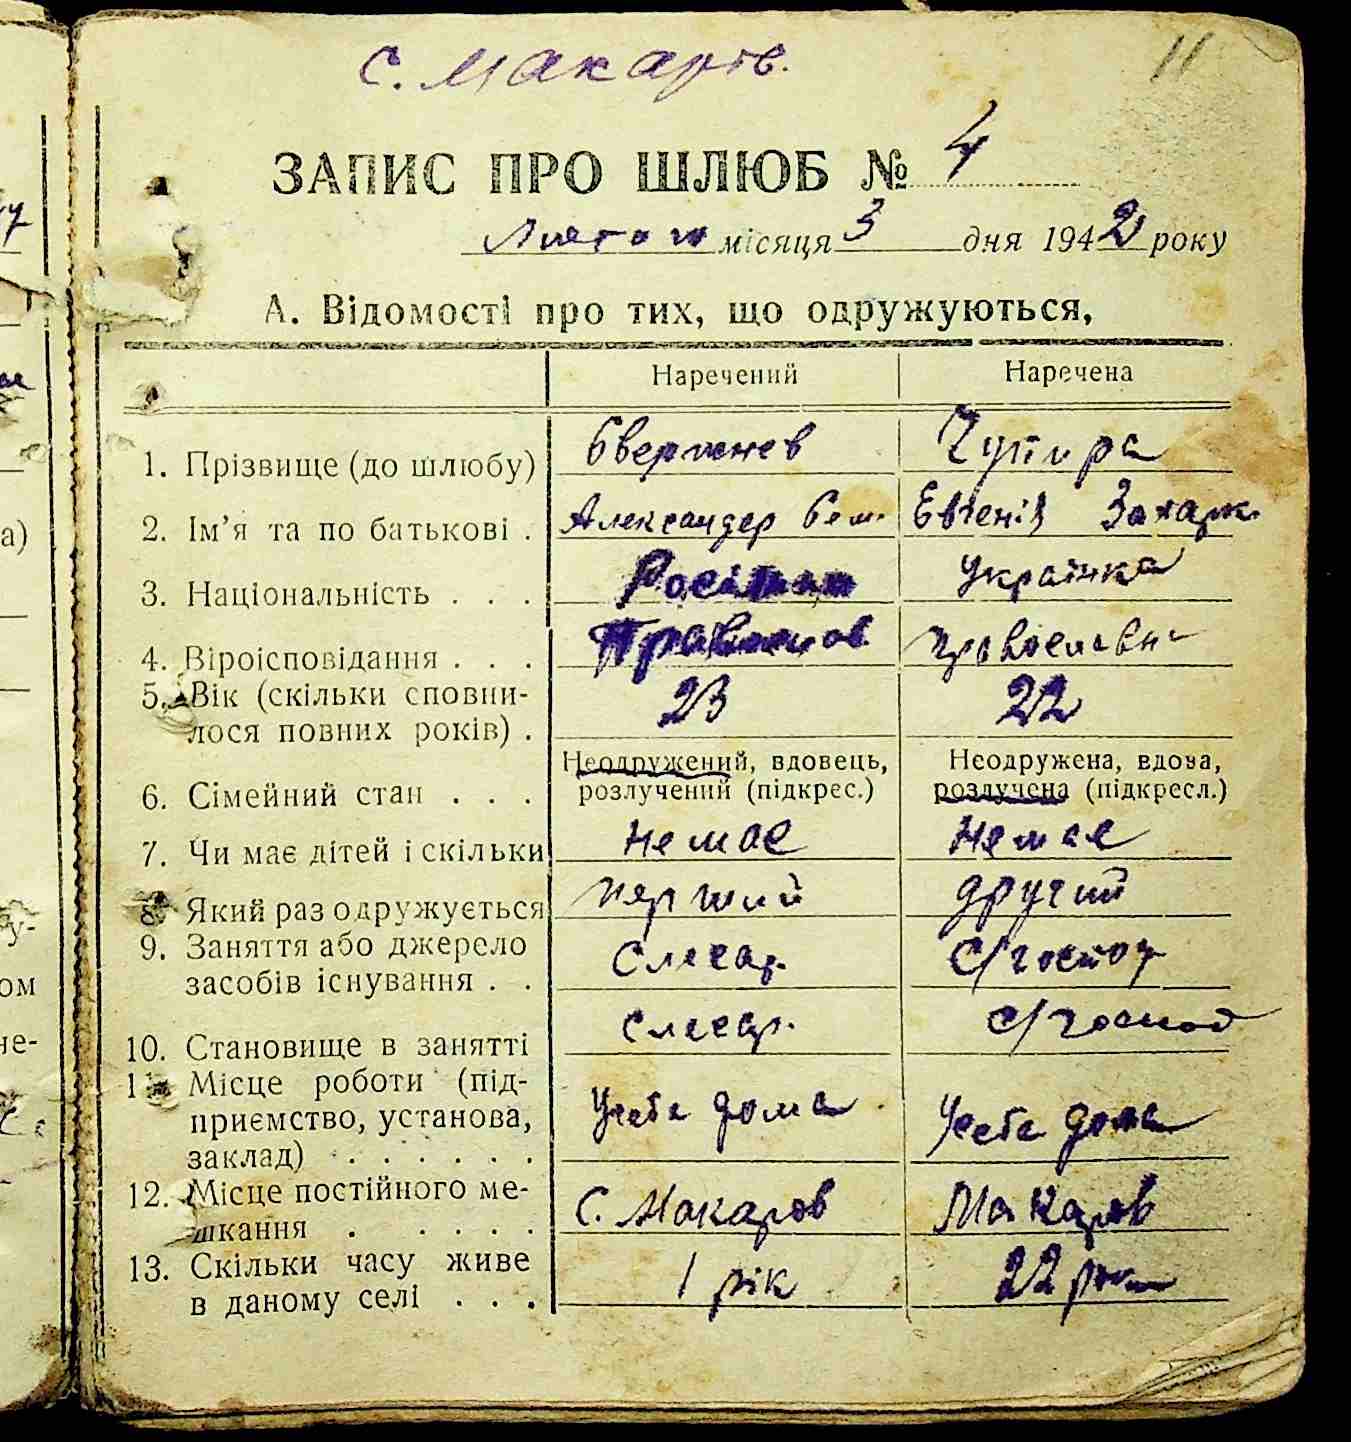 с. Макарів.
11
ЗАПИС ПРО ШЛЮБ № 4
Лютого місяця 3 дня 1942 року
А. Відомості про тих, що одружуються,
Наречений Наречена
1. Прізвище (до шлюбу) Чупира
2. Ім'я та по батькові . Александер Евгенія Захарк.
3. Національність . . . Росіянин Українка
4. Віроісповідання . . . Правослов Православн
5. Вік (скільки сповни-
лося повних років) . 23 22
Неодружений, вдовець, Неодружена, вдова,
6. Сімейний стан . . . розлучений (підкрес.) розлучена (підкресл.)
7. Чи має дітей і скільки Немає Немає
8. Який раз одружується перший другий
9. Заняття або джерело
засобів існування . . Слесар. С/господ
10. Становище в занятті Слесар. с/господ
11. Місце роботи (під-
приємство, установа, дома дома
заклад) . . . . . .
12. Місце постійного ме-
шкання . . . . . С. Макаров Макаров
13. Скільки часу живе
в даному селі . . . 1 рік 22 роки
а)
у-
ом
не-